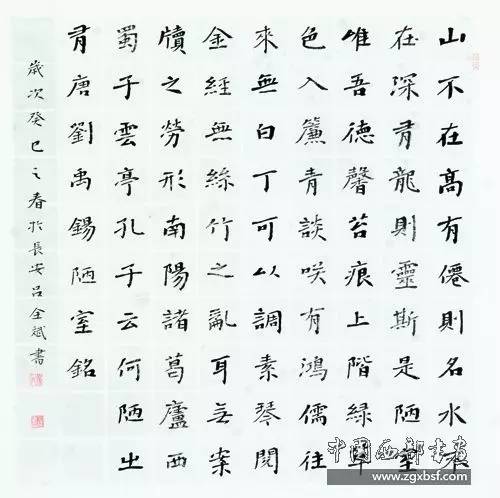 山不在高有僊則名水不
在深有龍則靈斯是陋室
唯吾德馨苔痕上階綠草
色入簾青談咲有鴻儒往
來無白丁可以調素琴閱
金經無絲竹之亂耳无案
牘之勞形南陽諸葛廬西
蜀子雲亭孔子云何陋之
有唐劉禹錫陋室銘
歲次癸巳之春於長安呂全斌書
中国西部书画
www.zgxbsf.com